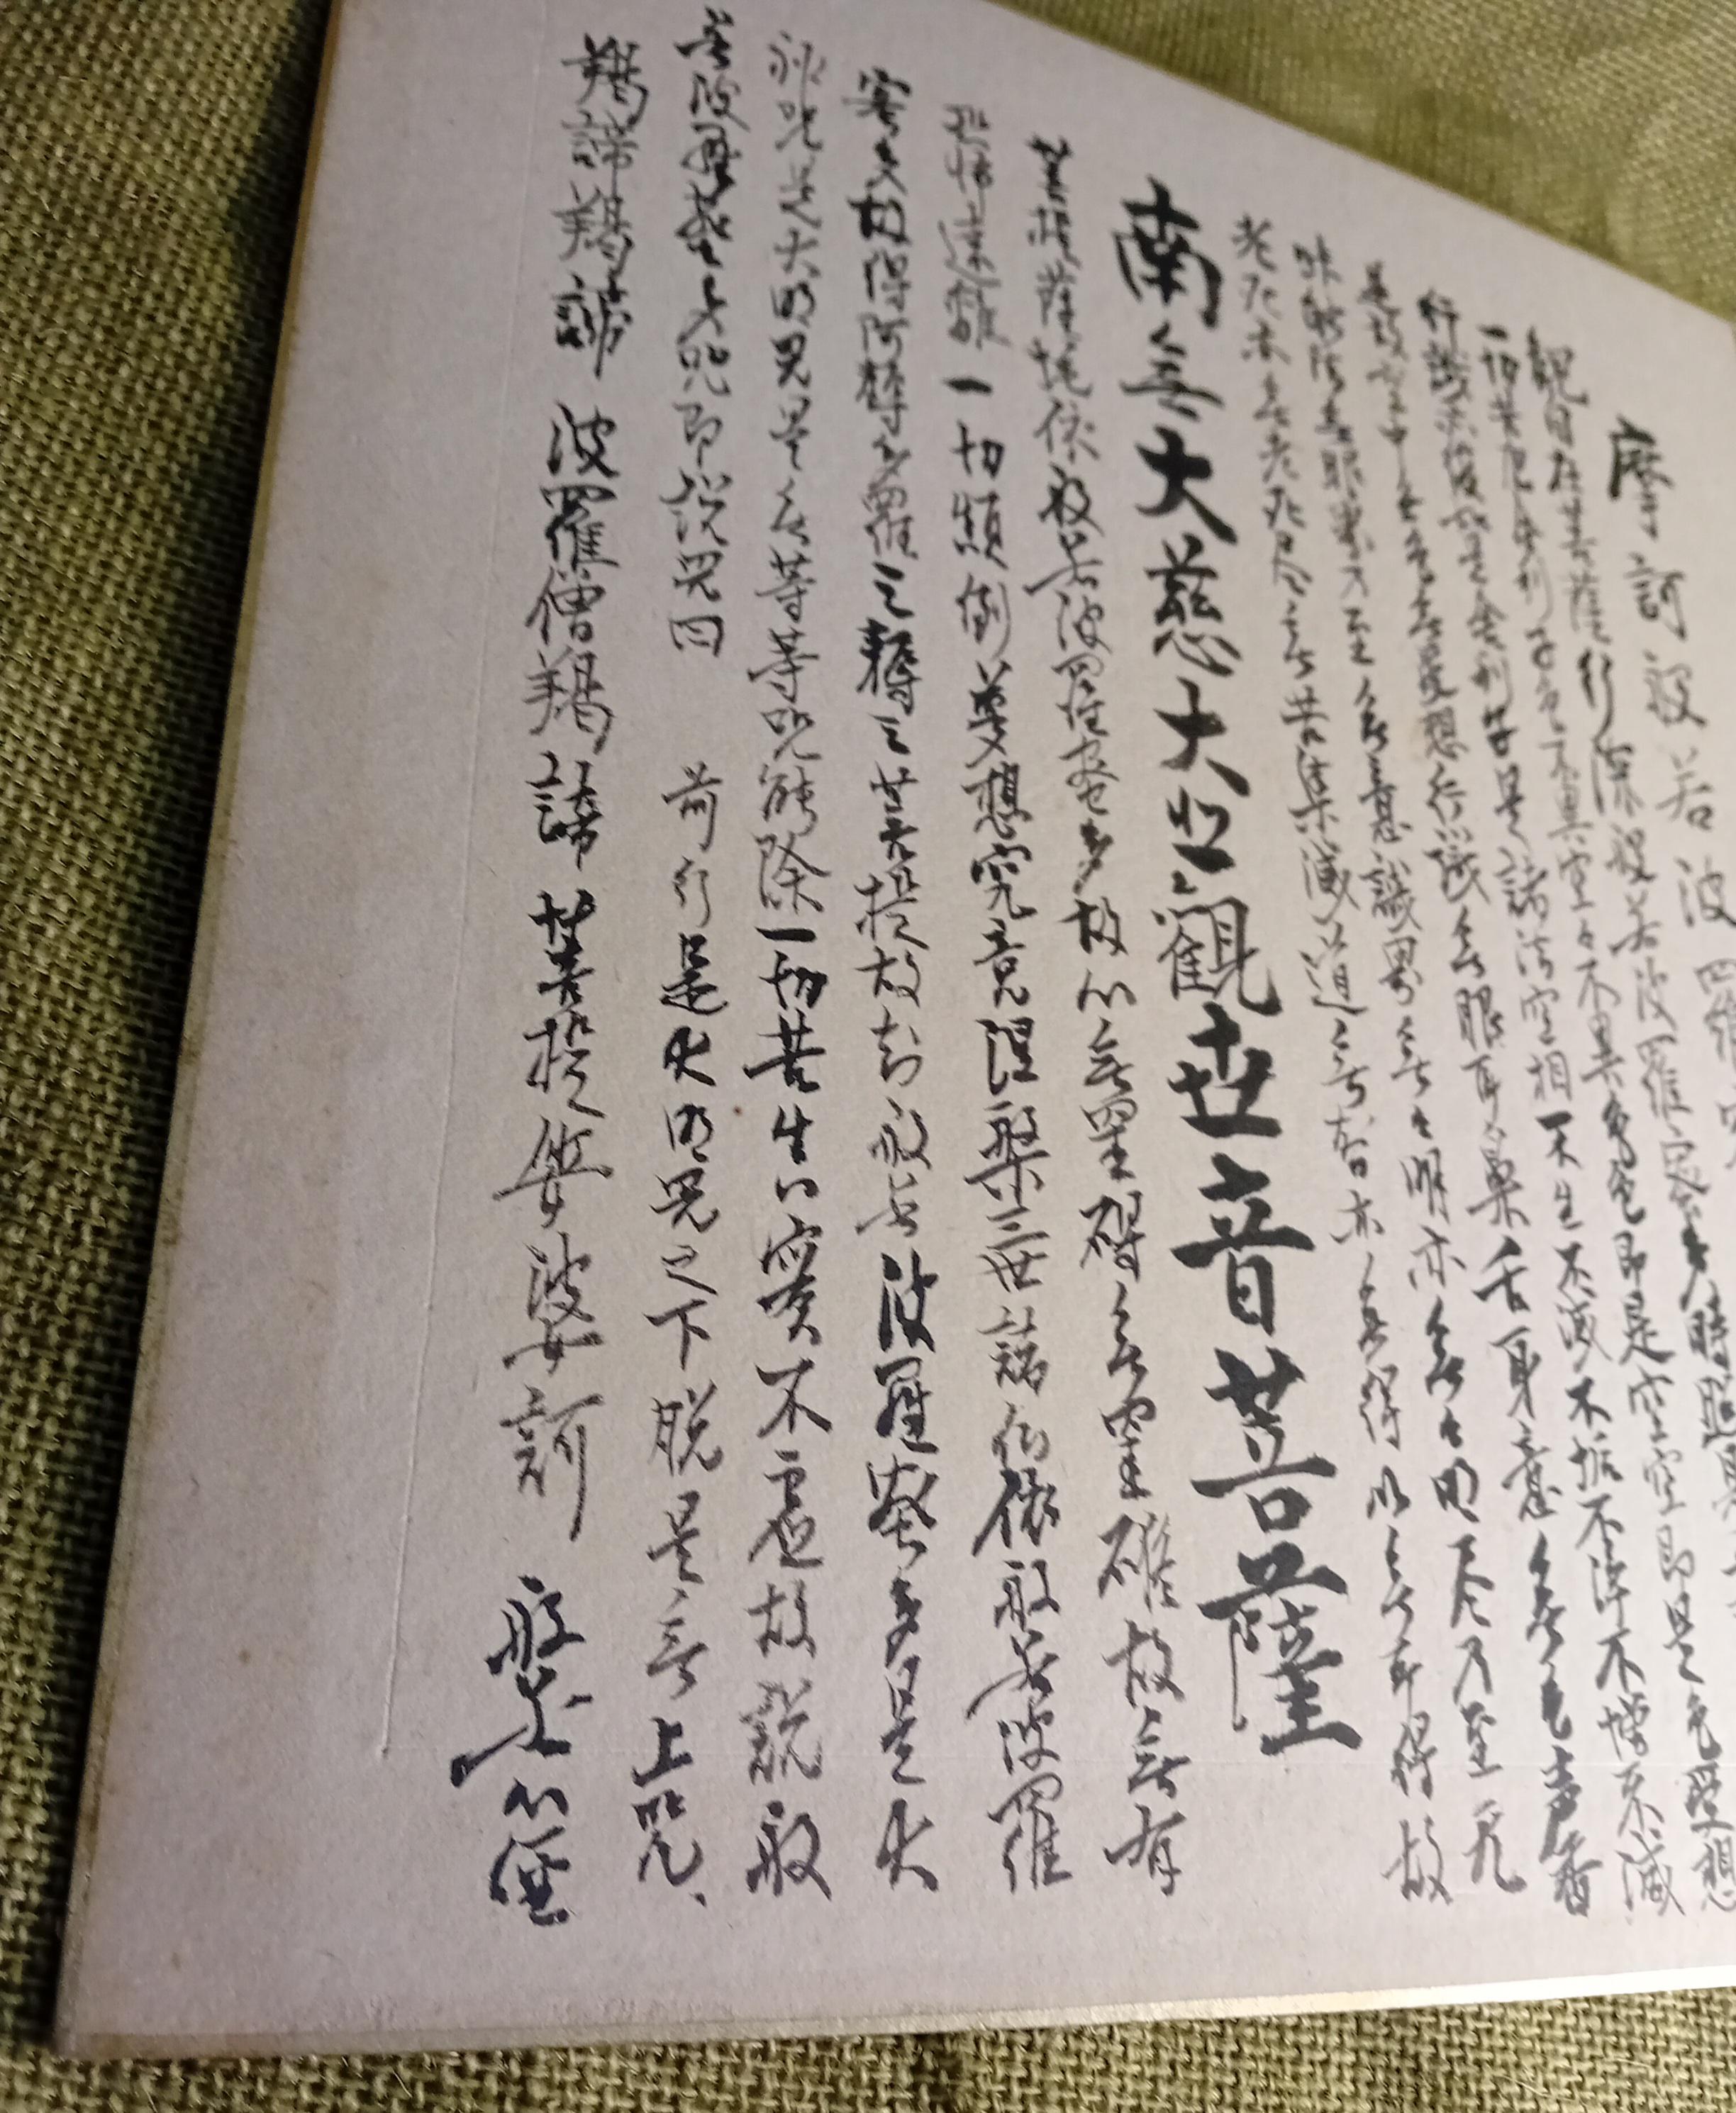 摩訶般若波羅
観自在菩薩行深般若波羅蜜多時照見
一切苦厄舎利子色不異空々不異色色即是空空即是色受想
行識亦復如是舎利子是諸法空相不生不滅不垢不浄不増不減
是故空中無色無受想行識無眼耳鼻舌身意無色声香
味触法無眼界乃至無意識界無々明亦無々明尽乃至无
老死亦無老死尽無苦集滅道無智亦無得以無所得故
南無大慈大悲観世音菩薩
菩提薩埵依般若波羅蜜多故心無罣礙無罣礙故無有
恐怖遠離一切顛倒夢想究竟涅槃三世諸仏依般若波羅
蜜多故得阿耨多羅三藐三菩提故知般若波羅蜜多是大
神咒是大明咒是無等等咒能除一切苦真実不虚故説般
若波羅蜜多咒即説咒曰 前行是大明咒之下脱是無上咒、
羯諦羯諦 波羅僧羯諦 菩提娑婆訶 般若心経